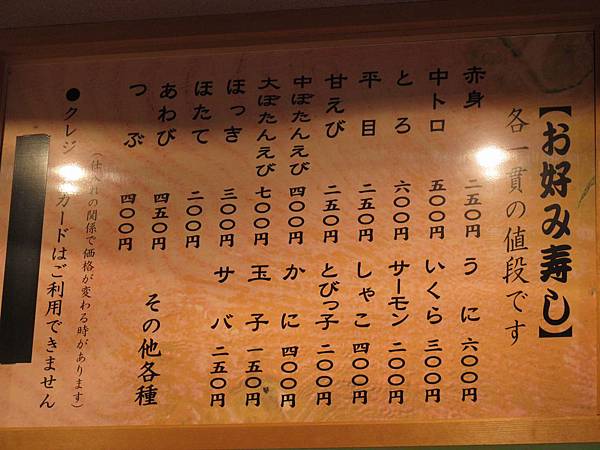 【お好み寿し】
各一貫の値段です
赤身 二五〇円
中トロ 五〇〇円
とろ 六〇〇円
平目 二五〇円
甘えび 二五〇円
中ぼたんえび 四〇〇円
大ぼたんえび 七〇〇円
ほっき 三〇〇円
ほたて 二〇〇円
あわび 四五〇円
つぶ 四〇〇円
うに 六〇〇円
いくら 三〇〇円
サーモン 二〇〇円
しゃこ 四〇〇円
とびっ子 二〇〇円
かに 四〇〇円
玉子 一五〇円
サバ 二五〇円
その他各種
(仕入れの関係で価格が変わる時があります)
●クレジ カードはご利用できません